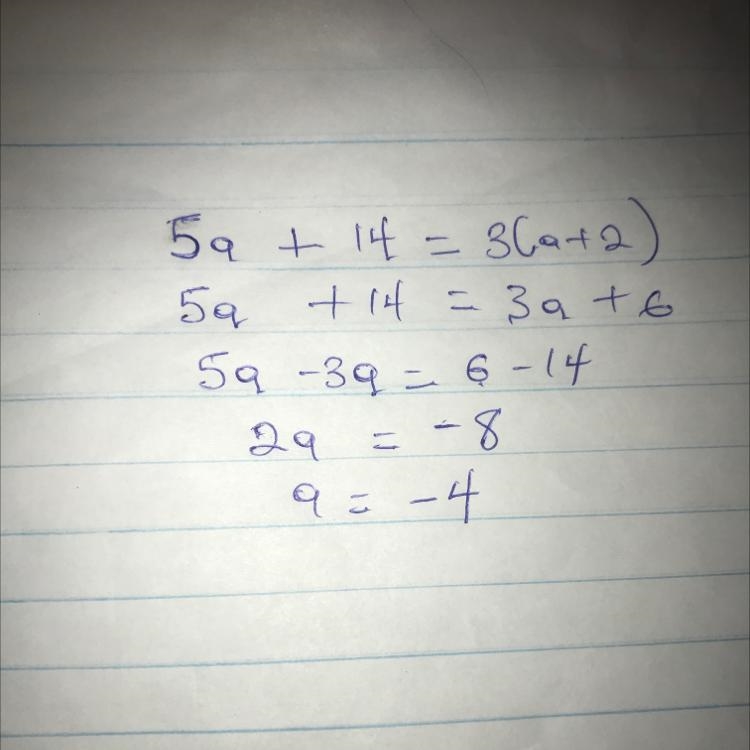 5a + 14 = 3(a+2)
5a + 14 = 3a + 6
5a - 3a = 6 - 14
2a = -8
a = -4